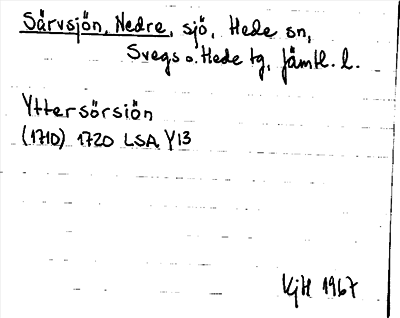 Särvsjön, Nedre, sjö, Hede sn,
Svegs o. Hede tg, Jämtl. l.
Yttersörsiön
(1710) 1720 LSA Y13
KjH 1967